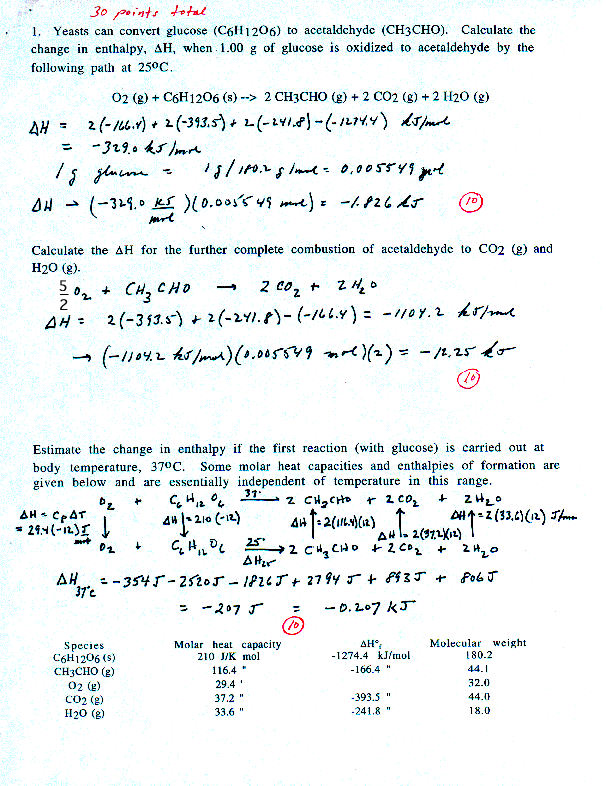 30 points total
1. Yeasts can convert glucose (C6H12O6) to acetaldehyde (CH3CHO). Calculate the
change in enthalpy, ΔH, when 1.00 g of glucose is oxidized to acetaldehyde by the
following path at 25ºC.
O2 (g) + C6H12O6 (s) --> 2 CH3CHO (g) + 2 CO2 (g) + 2 H2O (g)
ΔH = 2(-166.4) + 2(-393.5) + 2(-241.8) - (-1274.4) kJ/mol
= -329.0 kJ/mol
1 g glucose = 1 g/180.2 g/mol = 0.005549 mol
ΔH → (-329.0 kJ/mol)(0.005549 mol) = -1.826 kJ 10
Calculate the ΔH for the further complete combustion of acetaldehyde to CO2 (g) and
H2O (g).
5/2 O2 + CH3CHO → 2 CO2 + 2 H2O
ΔH = 2(-393.5) + 2(-241.8) - (-166.4) = -1104.2 kJ/mol
→ (-1104.2 kJ/mol)(0.005549 mol)(2) = -12.25 kJ
10
Estimate the change in enthalpy if the first reaction (with glucose) is carried out at
body temperature, 37ºC. Some molar heat capacities and enthalpies of formation are
given below and are essentially independent of temperature in this range.
O2 + C6H12O6 37° → 2 CH3CHO + 2 CO2 + 2 H2O
ΔH = CpΔT = 29.4(-12) J/mol ↓ ΔH ↓ = 210 (-12) ΔH ↑ = 2(116.4)(12) ΔH ↑ 2(37.2)(12) ΔH ↑ = 2(33.6)(12) J/mol
O2 + C6H12O6 25° → 2 CH3CHO + 2 CO2 + 2 H2O
ΔH25
ΔH37°C = -354 J - 2520 J - 1826 J + 2794 J + 893 J + 806 J
= -207 J = -0.207 kJ
10
Species Molar heat capacity ΔHºf Molecular weight
C6H12O6 (s) 210 J/K mol -1274.4 kJ/mol 180.2
CH3CHO (g) 116.4 " -166.4 " 44.1
O2 (g) 29.4 ' 32.0
CO2 (g) 37.2 " -393.5 " 44.0
H2O (g) 33.6 " -241.8 " 18.0